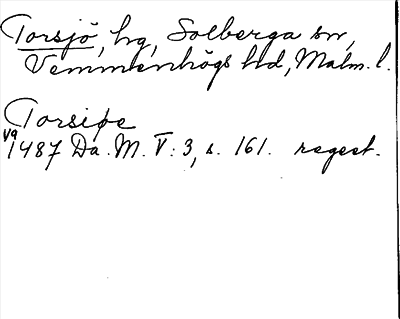 Torsjö, hg, Solberga sn,
Vemmenhögs hd, Malm. l.
Torsiøe
1487 Da. M. V: 3, s. 161. regest.